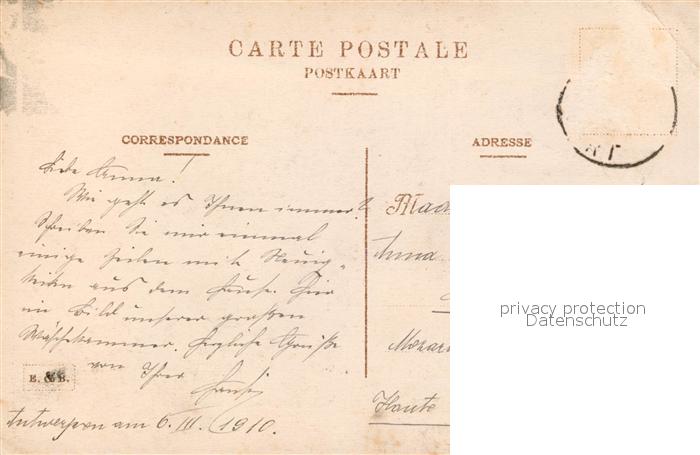 CARTE POSTALE
POSTKAART
CORRESPONDANCE
Liebe Anna!
Wie geht es Ihnen immer?
Schreiben Sie mir einmal
einige Zeilen mit Neuig-
keiten aus dem Hause. Hier
ein Bild unserer großen
Waschkammer. Herzliche Grüße
von Ihrer
E. & B.
Antwerpen am 6. III. 1910.
ADRESSE
Anna
Haute
privacy protection
Datenschutz